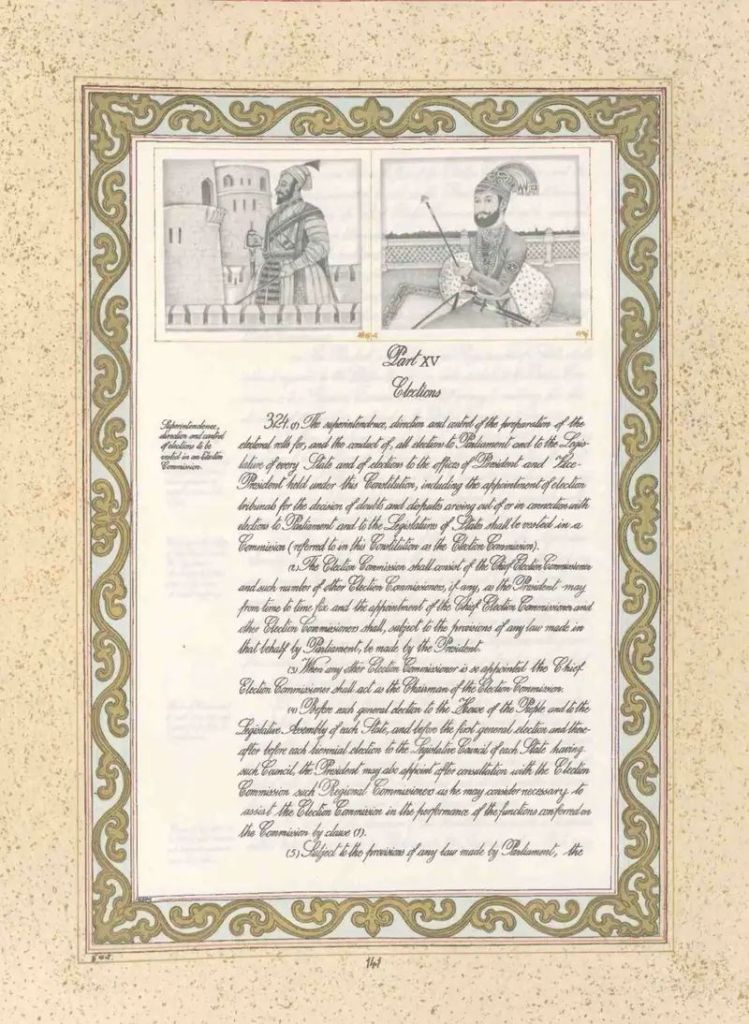 Part XV
Elections
Superintendence,
direction and control
of elections to be
vested in an Election
Commission.
324. (1) The superintendence, direction and control of the preparation of the
electoral rolls for, and the conduct of, all elections to Parliament and to the Legis-
lature of every State and of elections to the offices of President and Vice-
President held under this Constitution, including the appointment of election
tribunals for the decision of doubts and disputes arising out of or in connection with
elections to Parliament and to the Legislatures of States shall be vested in a
Commission (referred to in this Constitution as the Election Commission).
(2) The Election Commission shall consist of the Chief Election Commissioner
and such number of other Election Commissioners, if any, as the President may
from time to time fix and the appointment of the Chief Election Commissioner and
other Election Commissioners shall, subject to the provisions of any law made in
that behalf by Parliament, be made by the President.
(3) When any other Election Commissioner is so appointed the Chief
Election Commissioner shall act as the Chairman of the Election Commission.
(4) Before each general election to the House of the People and to the
Legislative Assembly of each State, and before the first general election and there-
after before each biennial election to the Legislative Council of each State having
such Council, the President may also appoint after consultation with the Election
Commission such Regional Commissioners as he may consider necessary to
assist the Election Commission in the performance of the functions conferred on
the Commission by clause (1).
(5) Subject to the provisions of any law made by Parliament, the
141